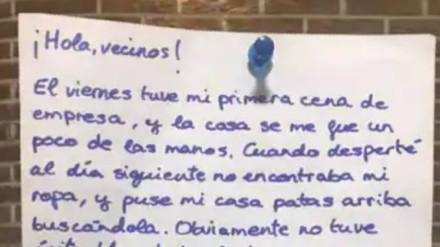 ¡Hola, vecinos!
El viernes tuve mi primera cena de
empresa, y la cosa se me fue un
poco de las manos. Cuando desperté
al día siguiente no encontraba mi
ropa, y puse mi casa patas arriba
buscándola. Obviamente no tuve